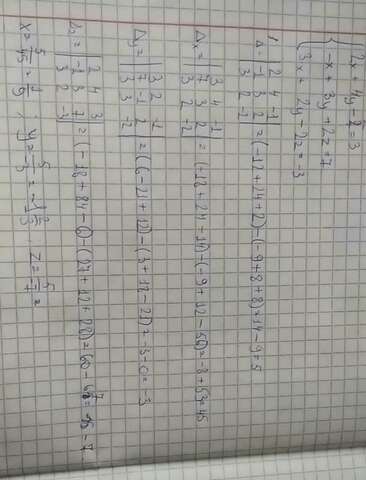 2x + 4y - z = 3
-x + 3y + 2z = 7
3x + 2y - 2z = -3
Δ = | 2 4 -1
-1 3 2
3 2 -2 | = (-12 + 24 + 2) - (-9 + 8 + 8) = 14 - 9 = 5
Δx = | 3 4 -1
7 3 2
-3 2 -2 | = (-18 + 24 - 14) - (-9 + 12 - 56) = -8 + 53 = 45
Δy = | 2 3 -1
-1 7 2
3 -3 -2 | = (6 - 21 + 12) - (3 + 18 - 21) = -3 - 0 = -3
Δz = | 2 4 3
-1 3 7
3 2 -3 | = (-18 + 84 - 6) - (27 + 12 + 28) = 60 - 67 = -7
x = 5/45 = 1/9 ; y = 5/-3 = -1 2/3 ; z = 5/-7 =